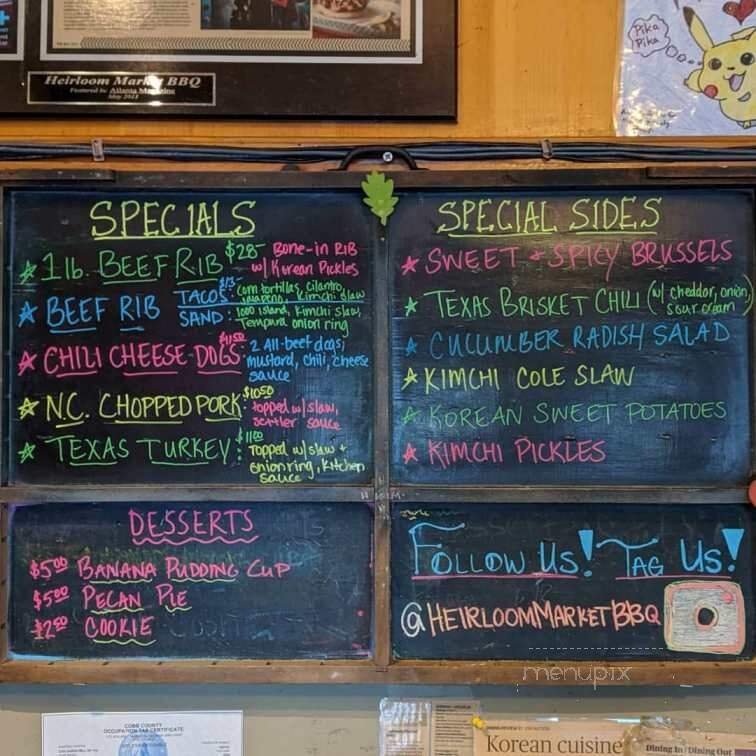 Heirloom Market BBQ
Featured by Atlanta Magazine
May 2013
Pika
Pika
SPECIALS
1lb. BEEF RIB $28- Bone-in RIB
w/ Korean Pickles
BEEF RIB TACOS: $13- corn tortillas, cilantro,
jalapeño, kimchi slaw
SAND: 1000 island, kimchi slaw,
Tempura onion ring
CHILI CHEESE DOGS: $11.50 2 All-beef dogs,
mustard, chili, cheese
sauce
N.C. CHOPPED PORK: $10.50
topped w/ slaw,
settler sauce
TEXAS TURKEY: $11.00
Topped w/ slaw +
onion ring, kitchen
sauce
SPECIAL SIDES
SWEET + SPICY BRUSSELS
TEXAS BRISKET CHILI (w/ cheddar, onion,
sour cream)
CUCUMBER RADISH SALAD
KIMCHI COLE SLAW
KOREAN SWEET POTATOES
KIMCHI PICKLES
DESSERTS
$5.00 BANANA PUDDING CUP
$5.00 PECAN PIE
$2.50 COOKIE
FOLLOW US! TAG US!
@HEIRLOOMMARKETBBQ
menupix
COBB COUNTY
OCCUPATION TAX CERTIFICATE
Korean cuisine
Dining In / Dining Out